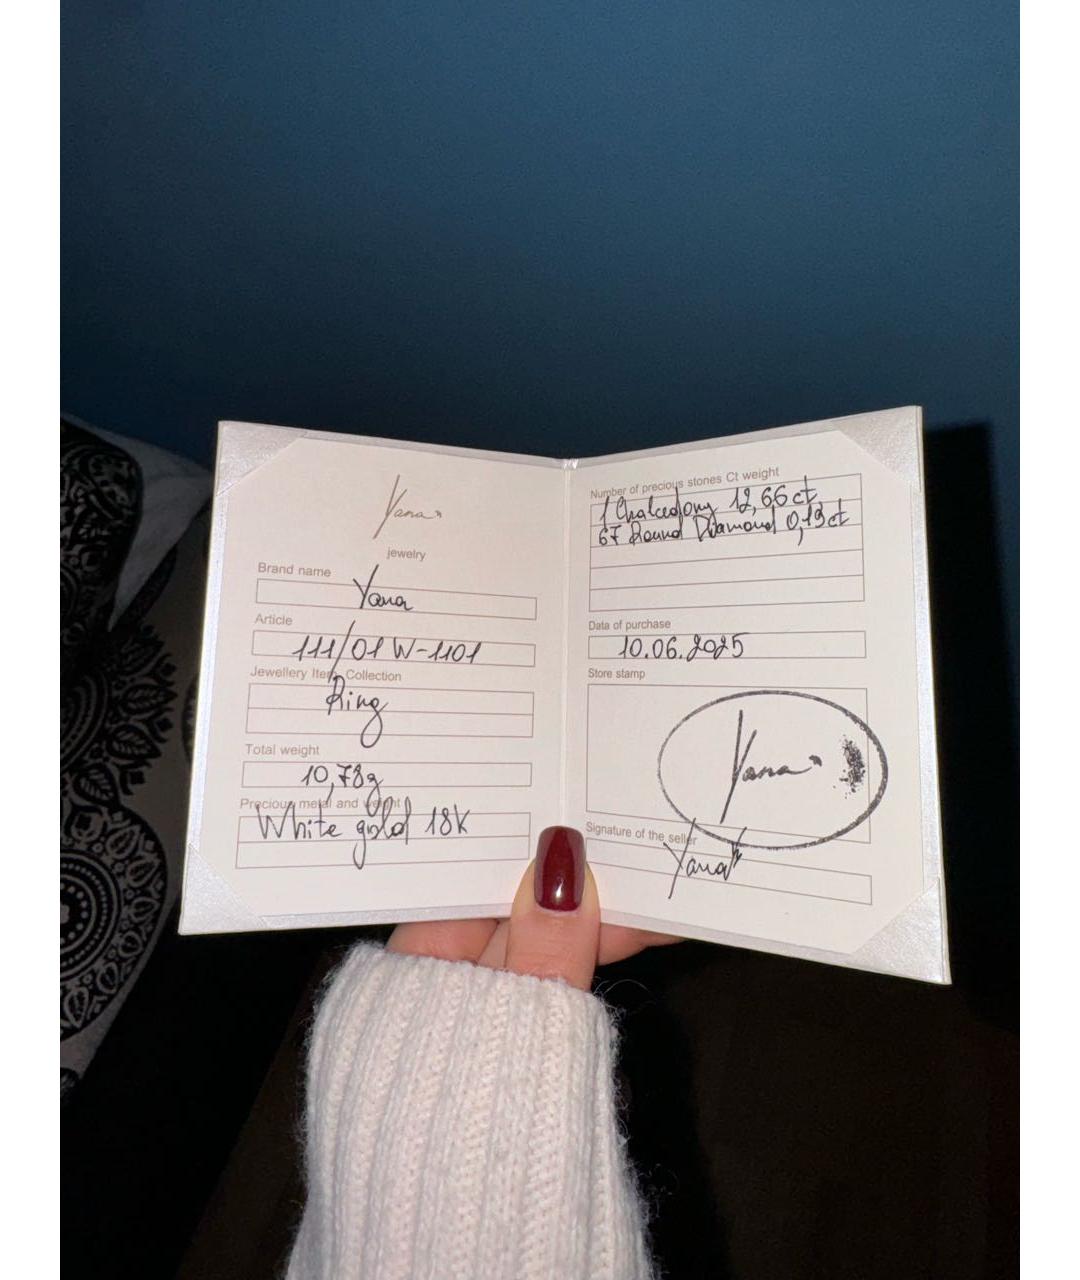 Yana
jewelry
Brand name
Yana
Article
111/01 W-1101
Jewellery Item, Collection
Ring
Total weight
10,78g
Precious metal and weight
White gold 18K
Number of precious stones Ct weight
1 Chalcedony 12,66 ct
67 Round Diamond 0,19 ct
Date of purchase
10.06.2025
Store stamp
Yana
Signature of the seller
Yana